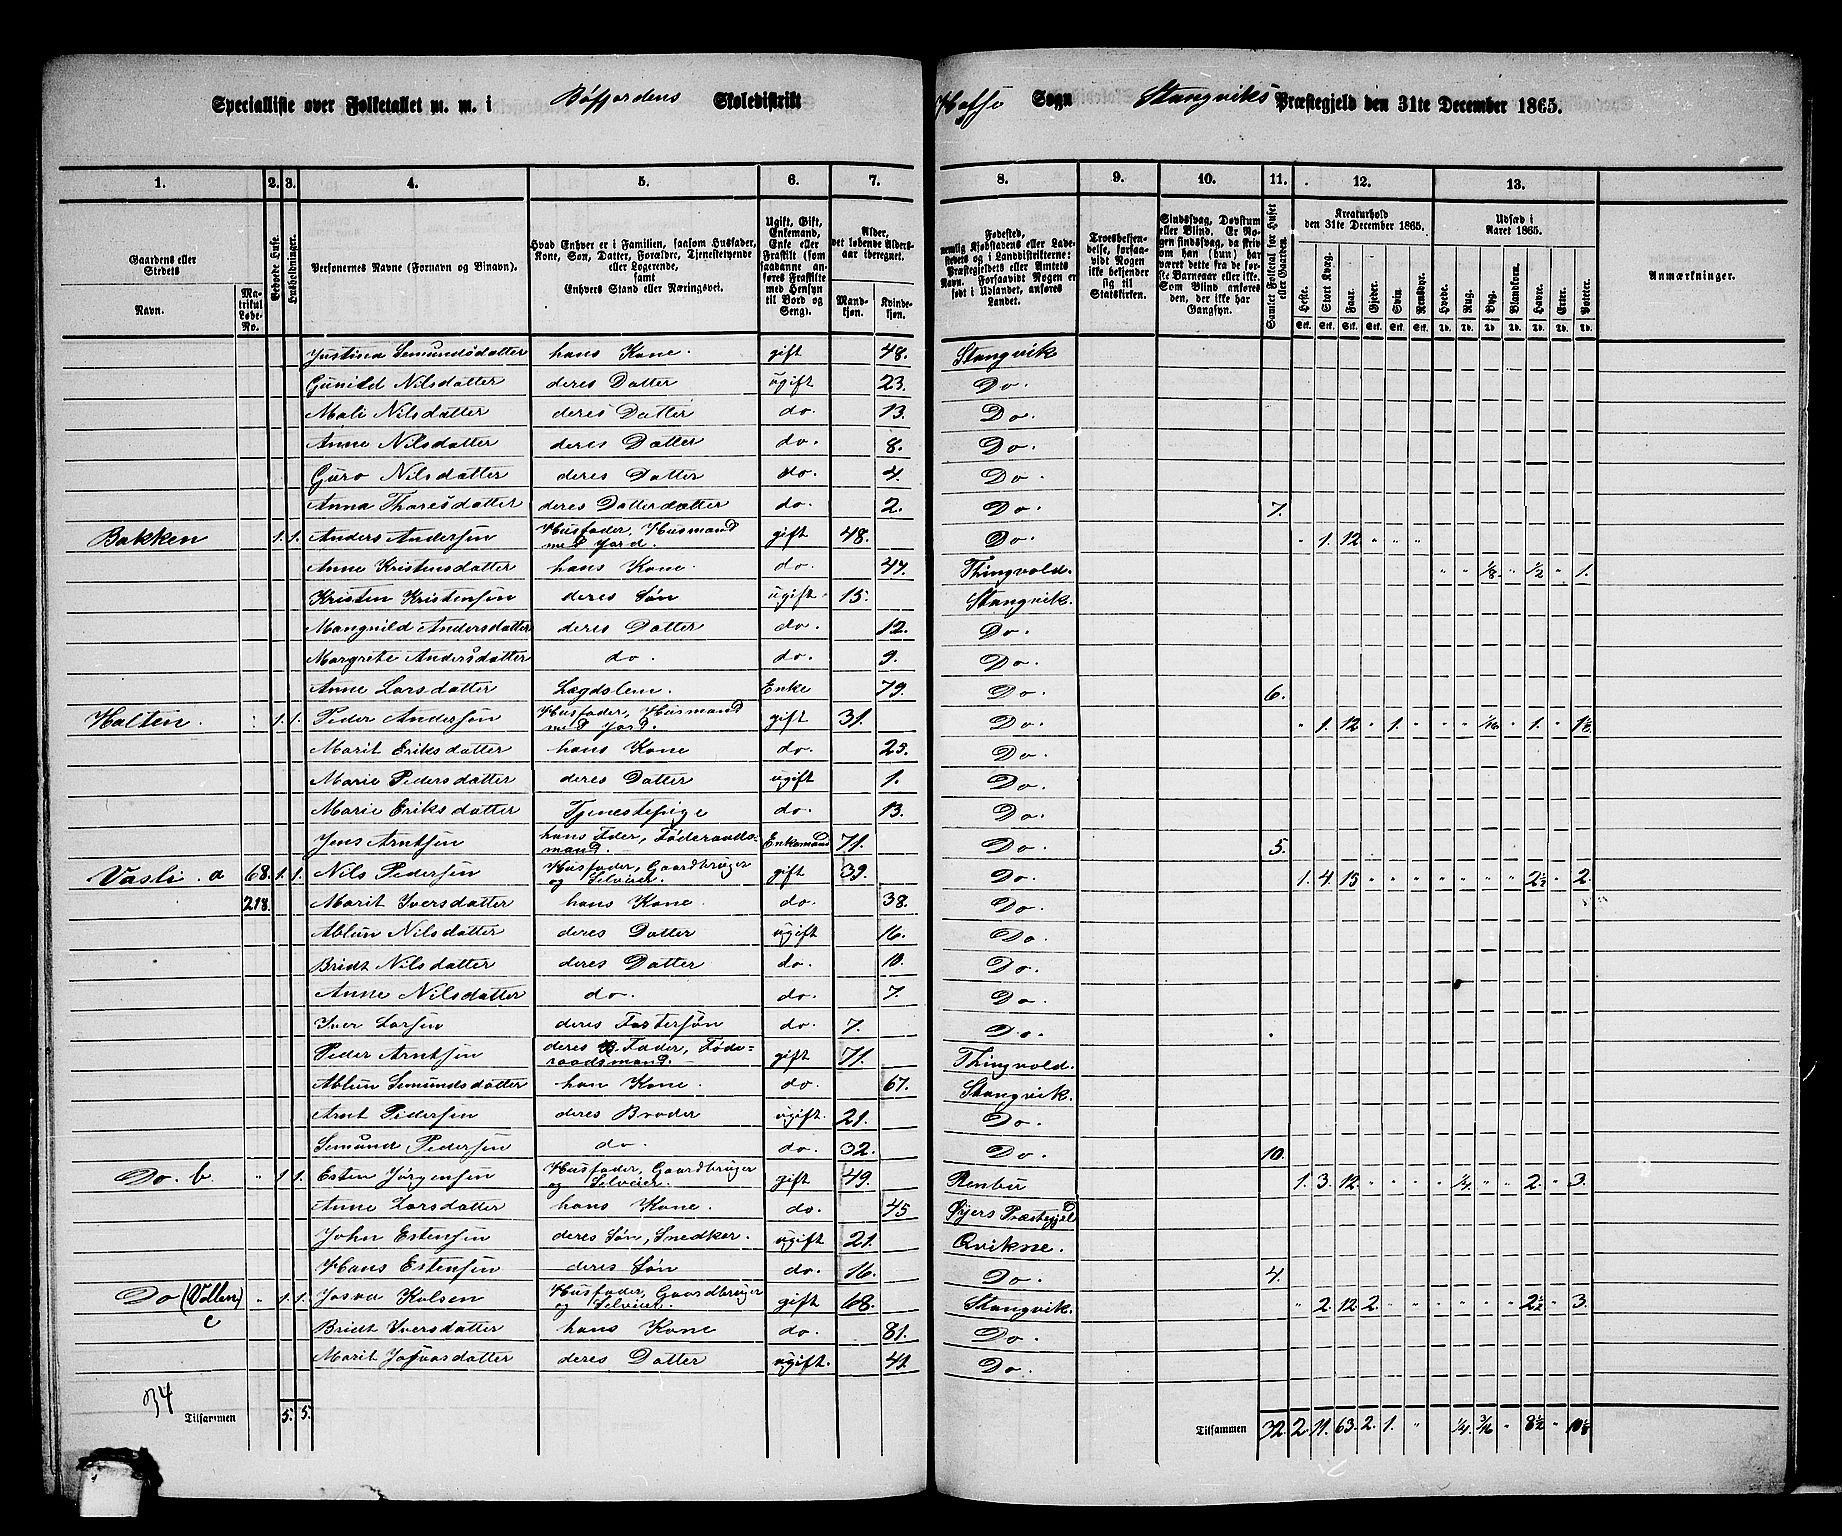 Specialliste over Folketallet m. m. i Bøfjordens Skoledistrikt Halse Sogn Stangviks Præstegjeld den 31te December 1865.
1. 2. 3. 4. 5. 6. 7. 8. 9. 10. 11. 12. 13.
Gaardens eller Stedets
Navn.
Matrikul Løbe-No.
Beboede Huse.
Husholdninger.
Personernes Navne (Fornavn og Binavn).
Hvad Enhver er i Familien, saasom Husfader, Kone, Søn, Datter, Forældre, Tjenestetyende eller Logerende, samt Enhvers Stand eller Næringsvei.
Ugift, Gift, Enkemand, Enke eller Fraskilt (som saadanne anføres Fraskilte med Hensyn til Bord og Seng).
Alder, det løbende Aldersaar iberegnet.
Mandkjøn. Kvindekjøn.
Fødested, nemlig Kjøbstadens eller Ladestedets og i Landdistrikterne: Præstegjeldets eller Amtets Navn. Forsaavidt Nogen er født i Udlandet, anføres Landet.
Troesbekjendelse, forsaavidt Nogen ikke bekjender sig til Statskirken.
Sindssvag, Døvstum eller Blind. Er Nogen sindssvag, da skrives om han (hun) har været dette fra de første Barneaar eller ikke. Som Blind anføres den, der ikke har Gangsyn.
Samlet Folketal for Huset eller Gaarden.
Kreaturhold den 31te December 1865.
Heste. Stort Kvæg. Faar. Gjeder. Svin. Rensdyr.
Udsæd i Aaret 1865.
Hvede. Rug. Byg. Blandkorn. Havre. Erter. Poteter.
Anmærkninger.
Justina Semundsdatter hans Kone. gift 48. Stangvik
Gunild Nilsdatter deres Datter ugift 23. Do.
Mali Nilsdatter deres Datter do. 13. Do.
Anne Nilsdatter deres Datter do. 8. Do.
Guro Nilsdatter deres Datter do. 4. Do.
Anna Thoresdatter deres Datterdatter do. 2. Do. 7.
Bakken 1. 1. Anders Andersen Husfader, Husmand med Jord. gift 48. Do. " 1. 12 " " "
Anne Kristensdatter hans Kone. do. 47. Thingvold. " " 1/8 " 1/2 " 1.
Kristen Kristensen deres Søn ugift. 15. Stangvik.
Mangnild Andersdatter deres Datter do. 12. Do.
Margrete Andersdatter do. do. 9. Do.
Anne Larsdatter Lægdslem. Enke 79. Do. 6.
Halten. 1. 1. Peder Andersøn Husfader, Husmand med Jord. gift 31. Do. " 1. 12 " 1. " " " 1/16 " 1. " 1 1/8
Marit Eriksdatter hans Kone do. 29. Do.
Marie Pedersdatter deres Datter ugift 1. Do.
Marie Eriksdatter Tjenestepige do. 13. Do.
Jens Arntsen hans Fader, Føderaadsmand. Enkemand 71. Do. 5.
Vasli a 68. 1. 1. Nils Pedersen Husfader, Gaardbruger og Selveier. gift 39. Do. 1. 4. 15 " " " " " " " 2 1/2 " 2.
218. Marit Iversdatter hans Kone. do. 38. Do.
Ablun Nilsdatter deres Datter ugift 16. Do.
Bridt Nilsdatter deres Datter do. 10. Do.
Anne Nilsdatter do. do. 7. Do.
Iver Larsen deres Fostersøn do. 7. Do.
Peder Arntsen deres Fader, Føderaadsmand. gift 71. Thingvold.
Ablun Semundsdatter han Kone. do. 67. Stangvik.
Arnt Pedersen deres Broder ugift. 21. Do.
Semund Pedersen do. do. 32. Do. 10.
Do. b " 1 1. Esten Jørgensen Husfader, Gaardbruger og Selveier. gift 49. Renbu 1. 3. 12 " " " " 1/4. " " 2. " 3.
Anne Larsdatter hans Kone. do. 45 Øyers Præstegjeld
John Estensen deres Søn, Snedker. ugift 21. Qvikne.
Hans Estensen deres Søn do. 16. Do. 4.
Do (Vollen) c " 1. 1. Josva Kolsen Husfader, Gaardbruger og Selveier. gift 68. Stangvik. " 2. 12 2. " " " " " " 2 1/2 " 3.
Bridt Iversdatter hans Kone do. 81. Do.
Marit Josvasdatter deres Datter ugift. 42. Do.
34
Tilsammen 5. 5. Tilsammen 32. 2. 11. 63. 2. 1. " 1/4. 3/16 " 8 1/2 " 10 1/8